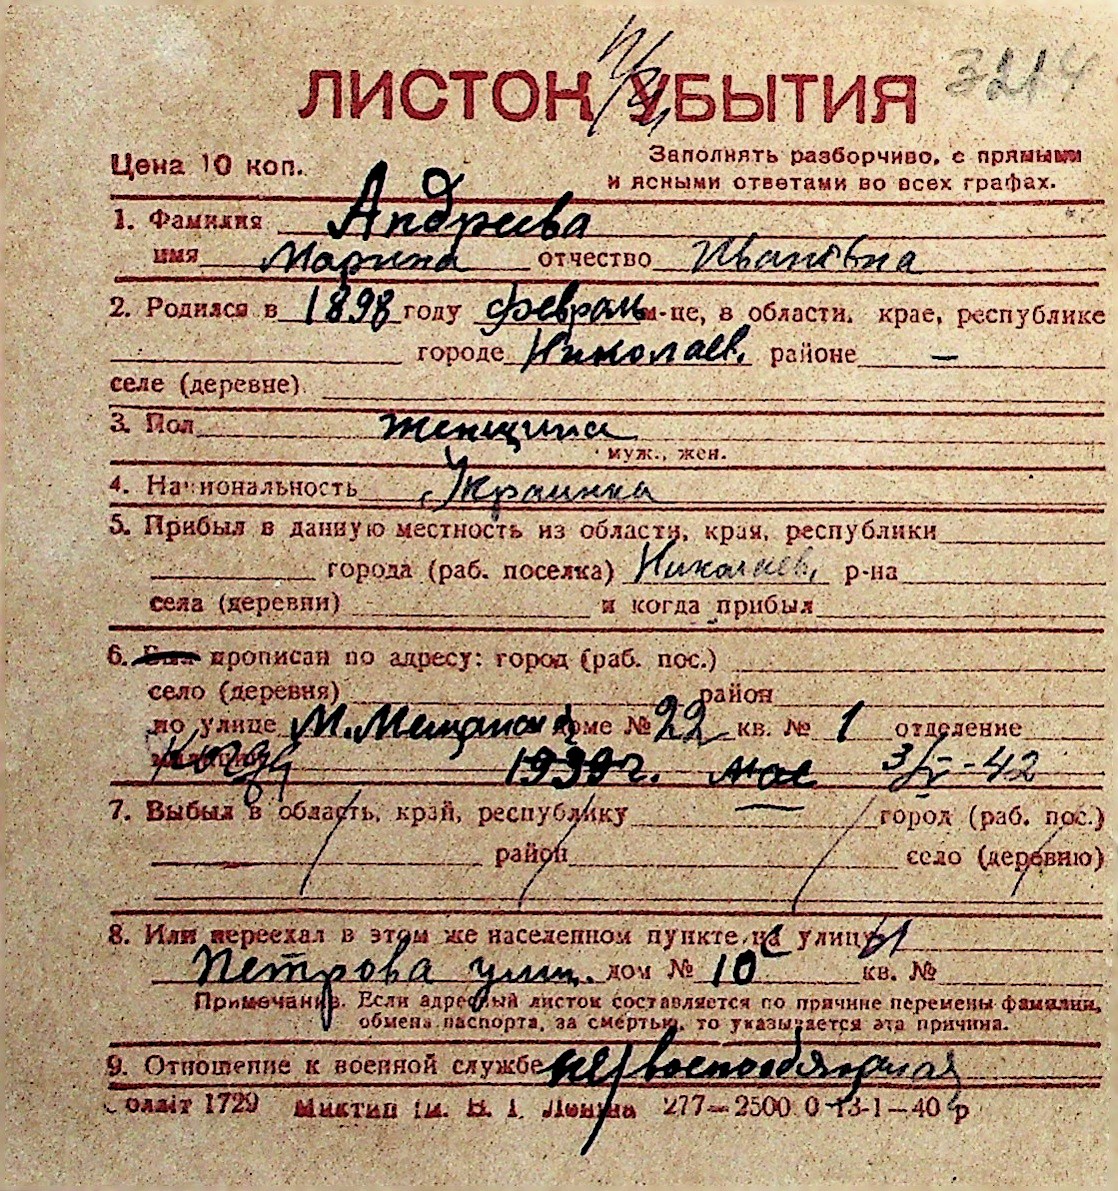 3214
ЛИСТОК УБЫТИЯ
Цена 10 коп.
Заполнять разборчиво, с прямыми
и ясными ответами во всех графах.
1. Фамилия Андреева
имя Марина отчество Ивановна
2. Родился в 1898 году февраль м-це, в области, крае, республике
городе Николаев. районе —
селе (деревне)
3. Пол женщина
муж., жен.
4. Национальность Украинка
5. Прибыл в данную местность из области, края, республики
города (раб. поселка) Николаев, р-на
села (деревни) и когда прибыл
6. Был прописан по адресу: город (раб. пос.)
село (деревня) район
по улице М. Мещанск доме № 22 кв. № 1 отделение
милиции Когда 1939 г. 3/V-42
7. Выбыл в область, край, республику город (раб. пос.)
район село (деревню)
8. Или переехал в этом же населенном пункте на улицу
Петрова улиц. дом № 10 кв. №
Примечание. Если адресный листок составляется по причине перемены фамилии,
обмена паспорта, за смертью, то указывается эта причина.
9. Отношение к военной службе невоенообязаная
1729 им. В. І. Леніна 277—2500 0 13-1—40 р